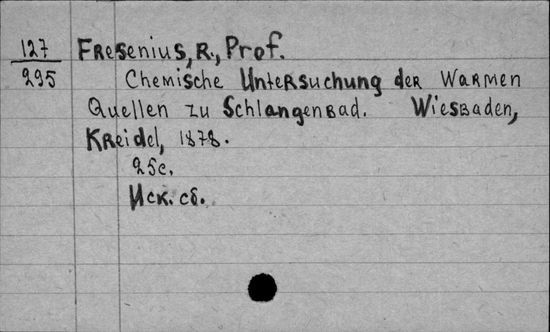 127
295
Fresenius, R., Prof.
Chemische Untersuchung der Warmen
Quellen zu Schlangenbad. Wiesbaden,
Kreidel, 1878.
25c.
Иск. сб.